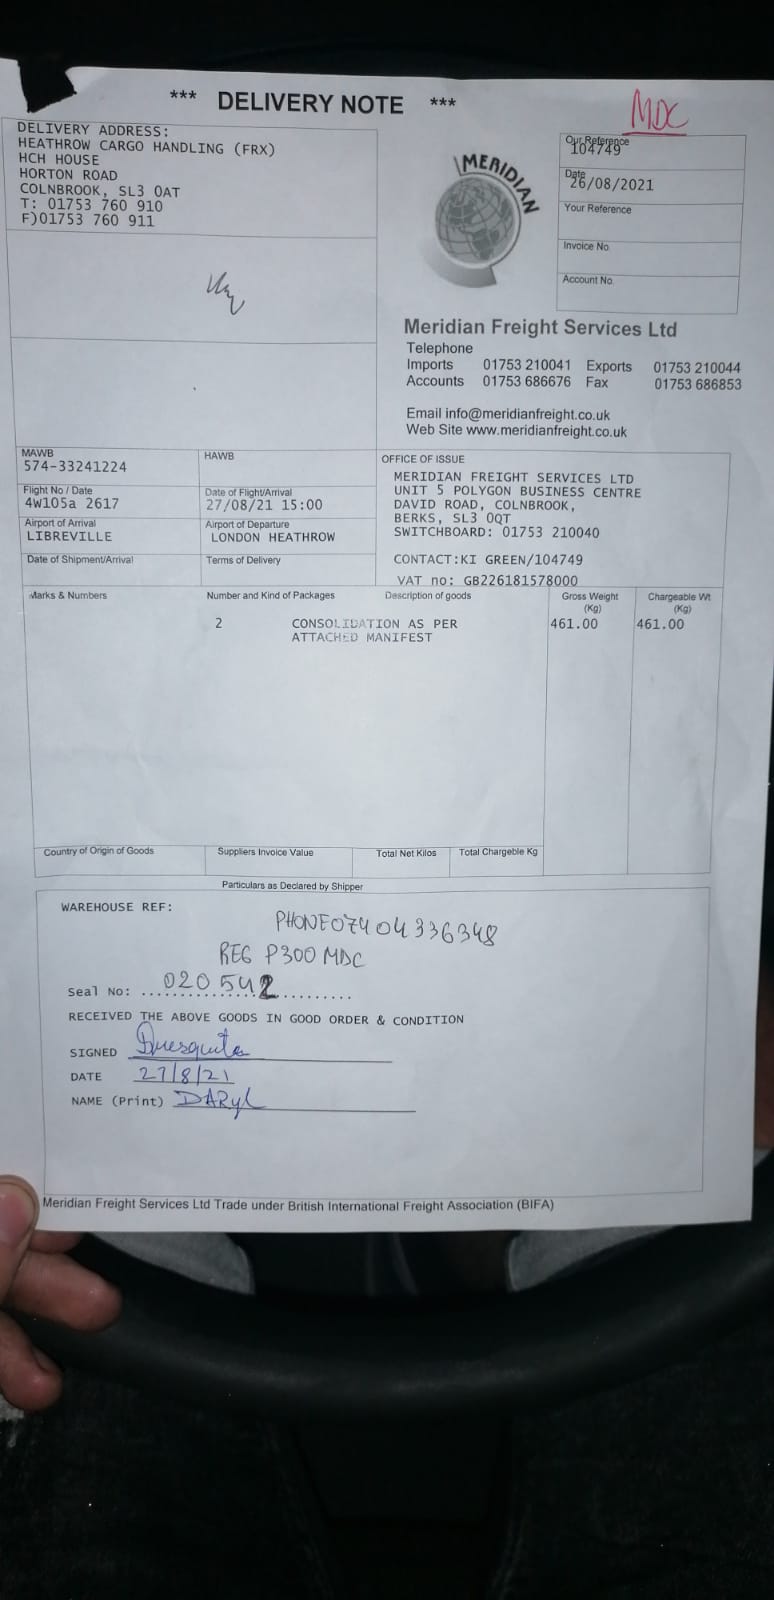 *** DELIVERY NOTE ***
MDC
DELIVERY ADDRESS:
HEATHROW CARGO HANDLING (FRX)
HCH HOUSE
HORTON ROAD
COLNBROOK, SL3 0AT
T: 01753 760 910
F)01753 760 911
MERIDIAN
Our Reference
104749
Date
26/08/2021
Your Reference
Invoice No.
Account No.
Meridian Freight Services Ltd
Telephone
Imports 01753 210041 Exports 01753 210044
Accounts 01753 686676 Fax 01753 686853
Email info@meridianfreight.co.uk
Web Site www.meridianfreight.co.uk
MAWB
574-33241224
HAWB
Flight No / Date
4W105a 2617
Date of Flight/Arrival
27/08/21 15:00
Airport of Arrival
LIBREVILLE
Airport of Departure
LONDON HEATHROW
Date of Shipment/Arrival
Terms of Delivery
OFFICE OF ISSUE
MERIDIAN FREIGHT SERVICES LTD
UNIT 5 POLYGON BUSINESS CENTRE
DAVID ROAD, COLNBROOK,
BERKS, SL3 0QT
SWITCHBOARD: 01753 210040
CONTACT:KI GREEN/104749
VAT no: GB226181578000
Marks & Numbers Number and Kind of Packages Description of goods Gross Weight (Kg) Chargeable Wt (Kg)
2 CONSOLIDATION AS PER 461.00 461.00
ATTACHED MANIFEST
Country of Origin of Goods Suppliers Invoice Value Total Net Kilos Total Chargeble Kg
Particulars as Declared by Shipper
WAREHOUSE REF:
PHONE07404336348
REG P300 MDC
Seal No: 020542
RECEIVED THE ABOVE GOODS IN GOOD ORDER & CONDITION
SIGNED
DATE 27/8/21
NAME (Print) DARyl
Meridian Freight Services Ltd Trade under British International Freight Association (BIFA)